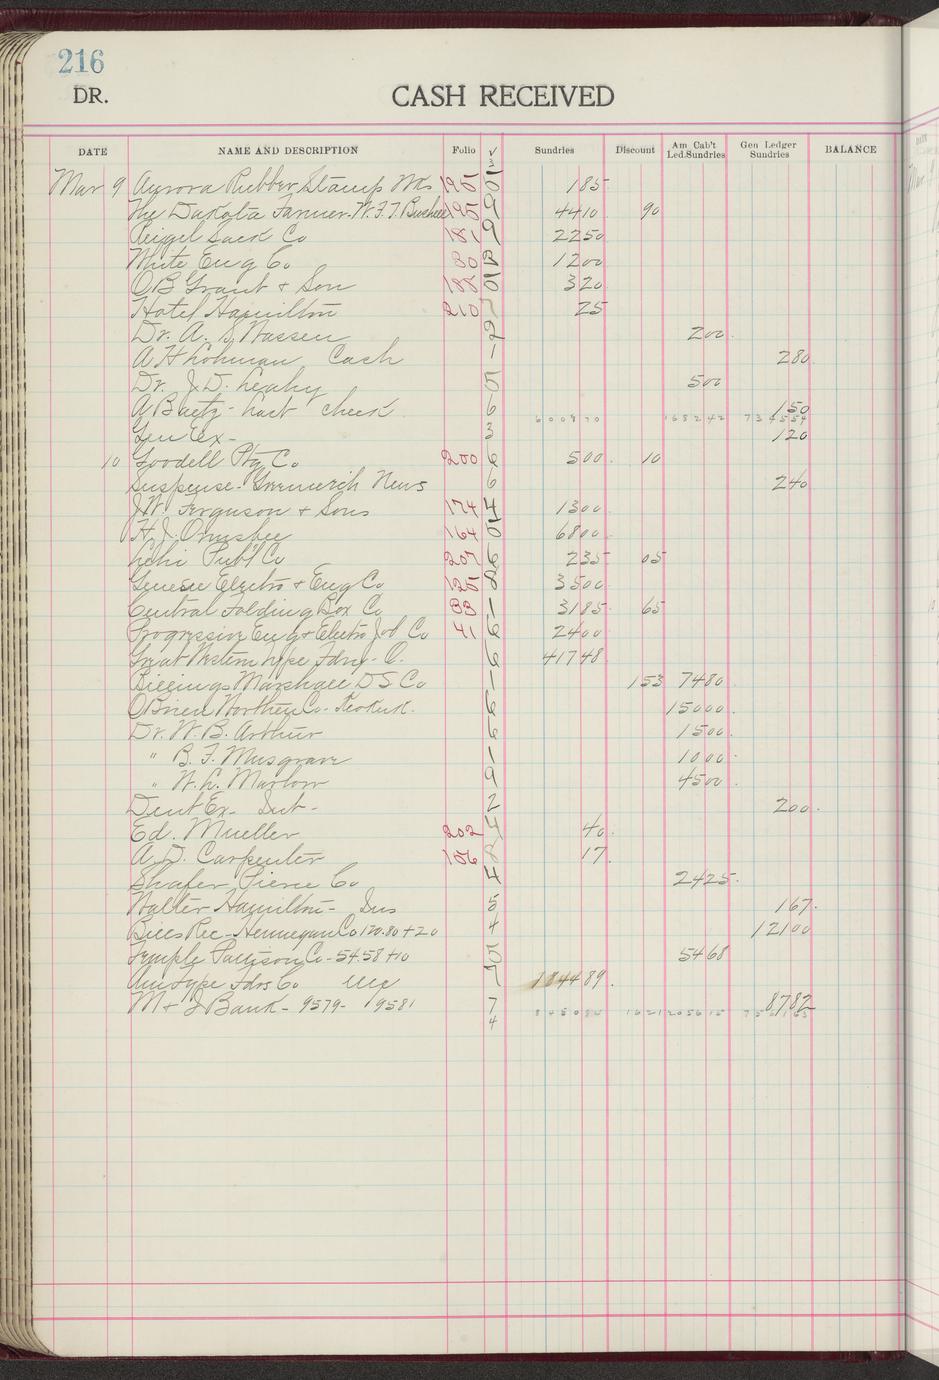 216
DR.
CASH RECEIVED
DATE NAME AND DESCRIPTION Folio √ Sundries Discount Am Cab't Led.Sundries Gen Ledger Sundries BALANCE
3
Mar 9 Aurora Rubber Stamp Wks 195 0 185
The Dakota Farmer - W.F.T. Bushell 195 9 4410 90
Reigel Sack Co 181 9 2250
White Eng Co 80 8 1200
O B Grant & Son 188 0 320
Hotel Hamilton 210 7 25
Dr. A. S. Wassen 2 200
A H Lohman Cash 1 280
Dr. J. D. Leahy 5 500
A Baetz - check 6 150
600970 168242 734554
Gen Ex - 3 120
10 Goodell Ptg Co 200 6 500 10
Suspense - Greenwich News 6 240
J.W. Ferguson & Sons 174 4 1300
H. J. Ormsbee 164 5 6800
Lehi Pub'l Co 207 6 235 05
Genesee Electro & Eng Co 125 8 3500
Central Folding Box Co 83 1 3185 65
Progressive Eng & Electro Job Co 41 6 2400
Great Western Type Fdry - O. 6 41748
Billings Marshall D S Co 1 153 7480
O'Brien Worthen Co - Keokuk. 6 15000
Dr. W. B. Arthur 5 1500
" B. F. Musgrave 1 1000
" W. L. Marlow 9 4500
Dent Ex - Int - 2 200
Ed. Mueller 202 4 40
A. D. Carpenter 106 8 17
Shafer Pierce Co 4 2425
Walter Hamilton - Ins 5 167
Bills Rec - Hennegan Co 120.80 + 20 4 12100
Temple Pattison Co - 5458 + 10 5 5468
Am Type Fdrs Co 7 184489
M & I Bank - 9579 - 9581 7 8782
4 845085 1621 205615